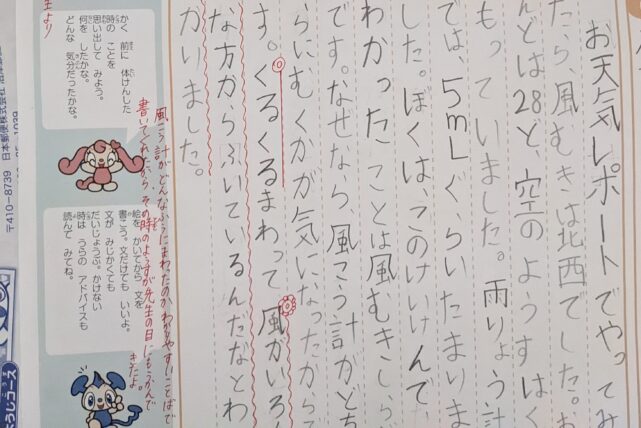 お天気レポートでやってみ
たら、風むきは北西でした。お
んどは28ど、空のようすはく
もっていました。雨りょう計
では、5mLぐらいたまりま
した。ぼくは、このけいけんで、
わかったことは風むきしら
です。なぜなら風こう計がどち
らにむくかが気になったから
す。くるくるまわって風がいろん
な方からふいているんだなとわ
かりました。
風こう計がどんなふうにまわったのかわかりやすいことばで
書いてくれたから、その時のようすが先生の目にもうかんで
きたよ。
かく前に体けんした
時のことを
思い出してみよう。
何をしたかな。
どんな気分だったかな。
絵をかいてから文を
書こう。文だけでもいいよ。
文がみじかくても
だいじょうぶ。かけない
時はうらのアドバイスも
読んでみてね。
生より
〒410-8739 日本郵便株式会社
ようじコース